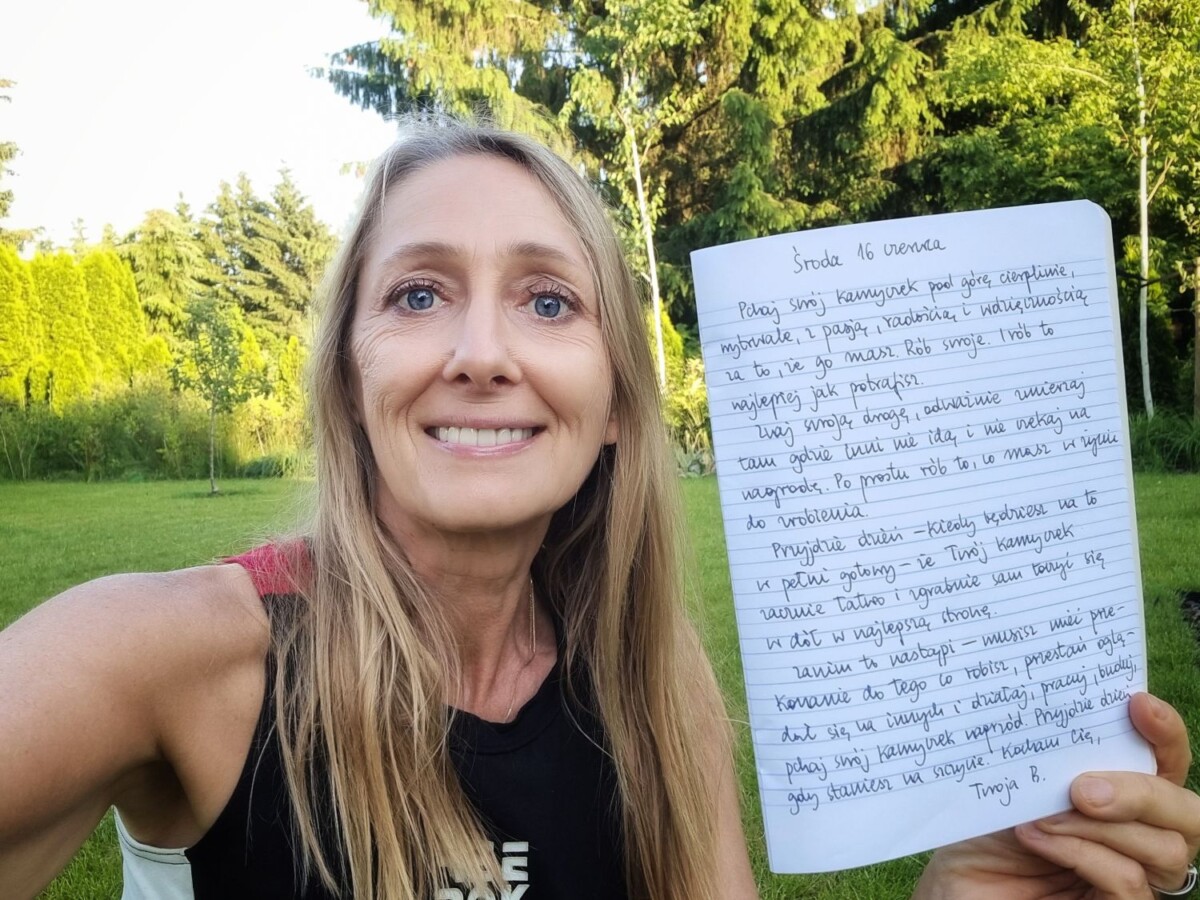 Środa 16 czerwca
Pchaj swój kamyczek pod górę cierpliwie,
wytrwale, z pasją, radością i wdzięcznością
za to, że go masz. Rób swoje. I rób to
najlepiej jak potrafisz.
Znaj swoją drogę, odważnie zmierzaj
tam gdzie inni nie idą i nie czekaj na
nagrodę. Po prostu rób to, co masz w życiu
do zrobienia.
Przyjdzie dzień – kiedy będziesz na to
w pełni gotowy – że Twój kamyczek
zacznie łatwo i zgrabnie sam toczyć się
w dół w najlepszą stronę.
Zanim to nastąpi – musisz mieć prze-
konanie do tego co robisz, przestań oglą-
dać się na innych i działaj, pracuj, buduj,
pchaj swój kamyczek naprzód. Przyjdzie dzień,
gdy staniesz na szczycie. Kocham Cię,
Twoja B.